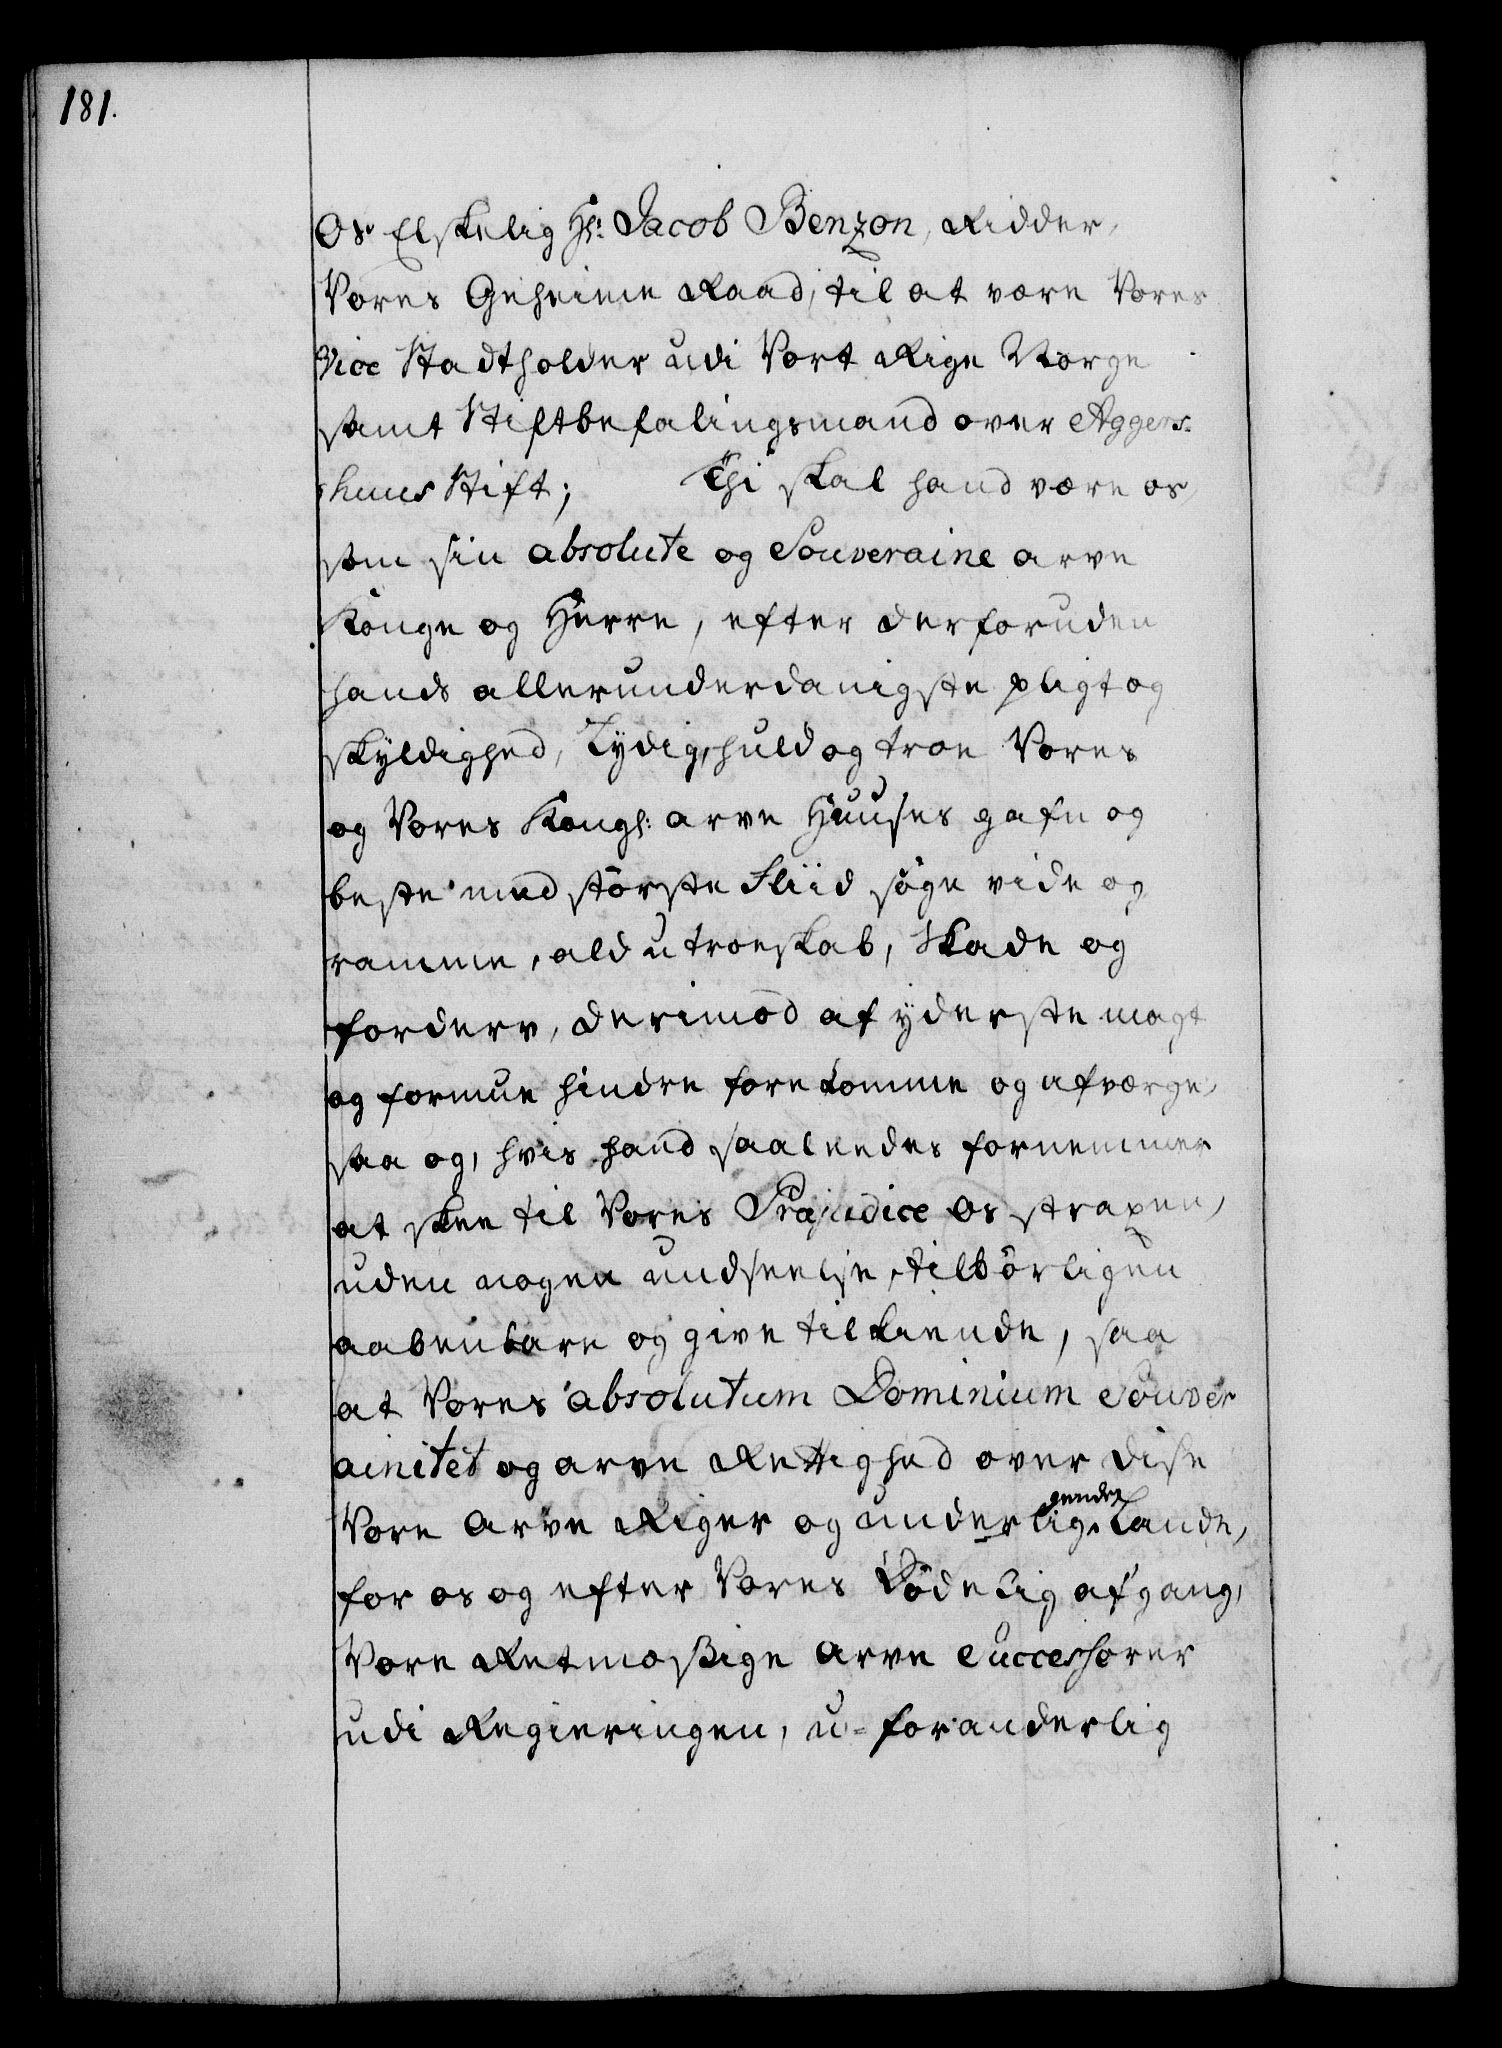 181.
Os Elskelig Hr: Jacob Benzon, Ridder,
Vores Geheime Raad, til at være Vores
Vice Stadtholder udi Vort Rige Norge
samt Stiftbefalingsmand over Aggers-
huus Stift; Thi skal hand være os,
som sin absolute og Souveraine arve
Konge og Herre, efter derforuden
hands allerunderdanigste pligt og
skyldighed, Lydig, huld og troe Vores
og Vores Kongl: arve Huuses gafn og
beste med störste Fliid söge vide og
ramme, ald utroeskab, Skade og
forderv, derimod af yderste magt
og formue hindre forekomme og afværge,
saa og, hvis hand saaleedes fornemmer
at skee til Vores Præjudice os straxen,
uden nogen undseelse, tilbörligen
aabenbare og give tilkiende, saa
at Vores absolutum Dominium Souver
ainitet og arve Rettighed over disse
Vore Arve Riger og underliggendes Lande,
for os og efter Vores Dödelig afgang,
Vore Retmæssige Arve Successorer
udi Regieringen, u-foranderlig